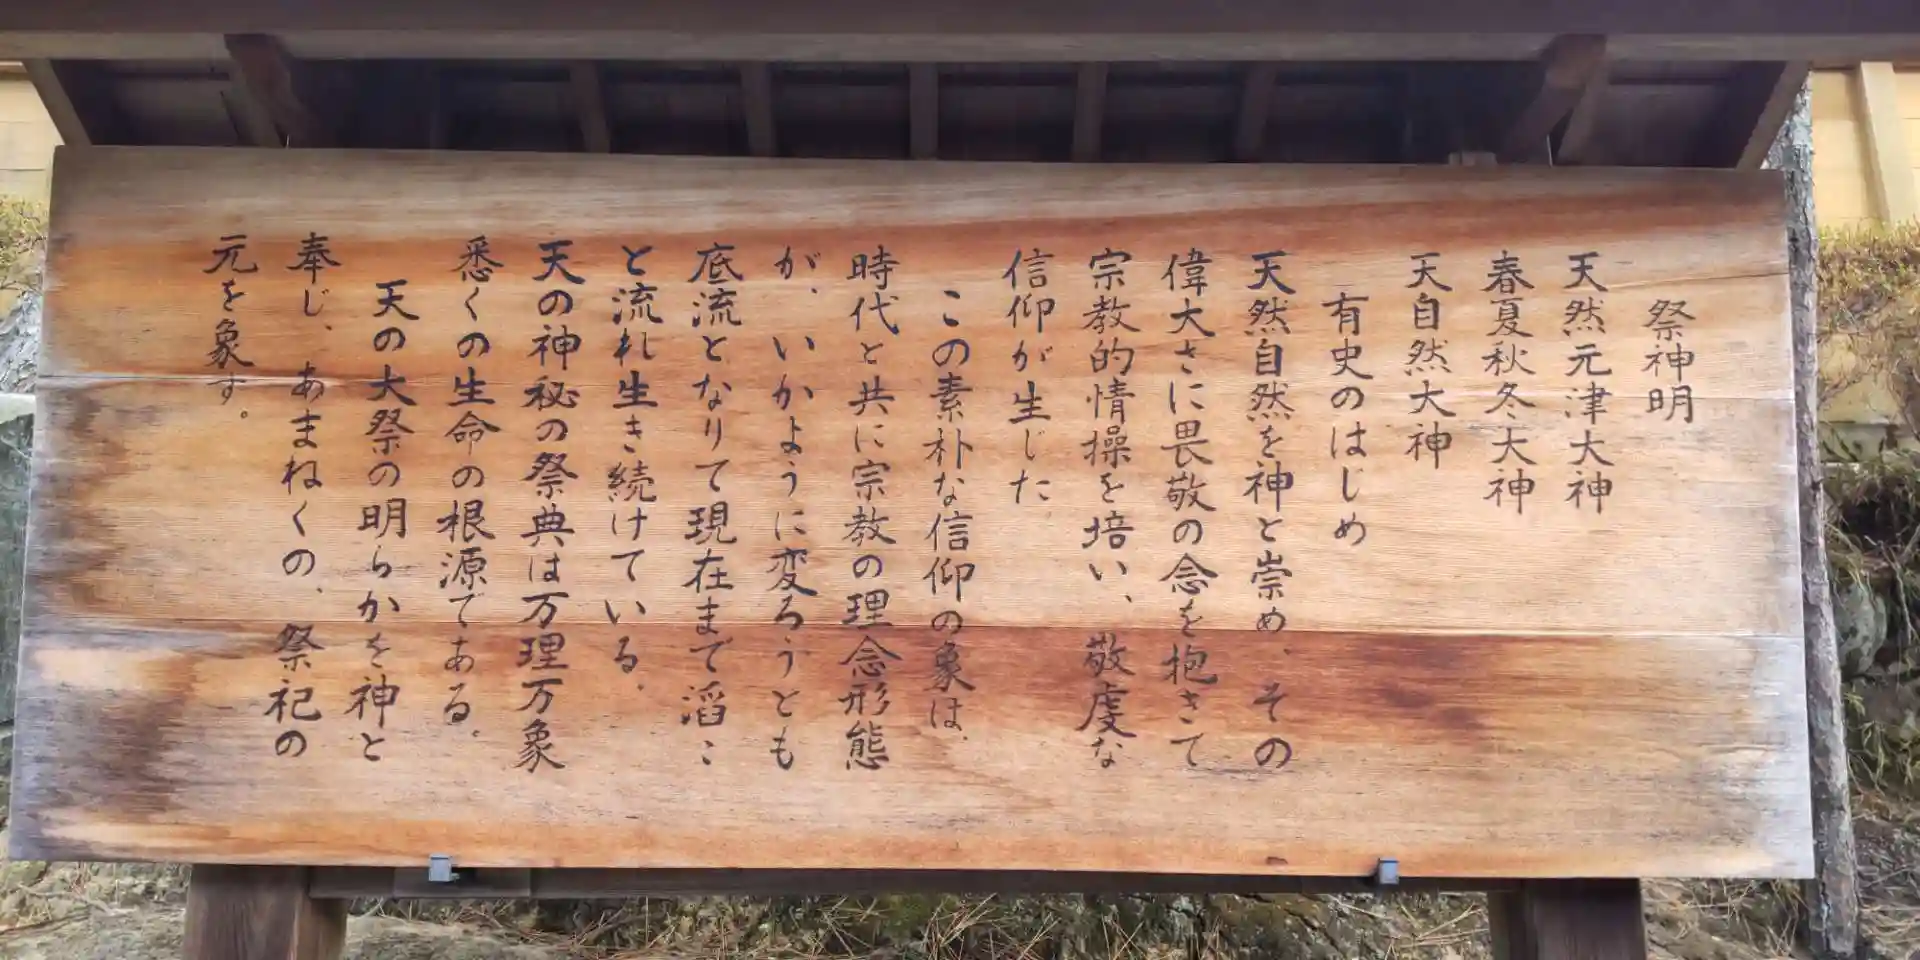 祭神明
天然元津大神
春夏秋冬大神
天自然大神
有史のはじめ
天然自然を神と崇め、その
偉大さに畏敬の念を抱きて
宗教的情操を培い、敬虔な
信仰が生じた
この素朴な信仰の象は、
時代と共に宗教の理念形態
が、いかように変ろうとも
底流となりて現在まで滔々
と流れ生き続けている。
天の神秘の祭典は万理万象
悉くの生命の根源である。
天の大祭の明らかを神と
奉じ、あまねくの、祭祀の
元を象す。